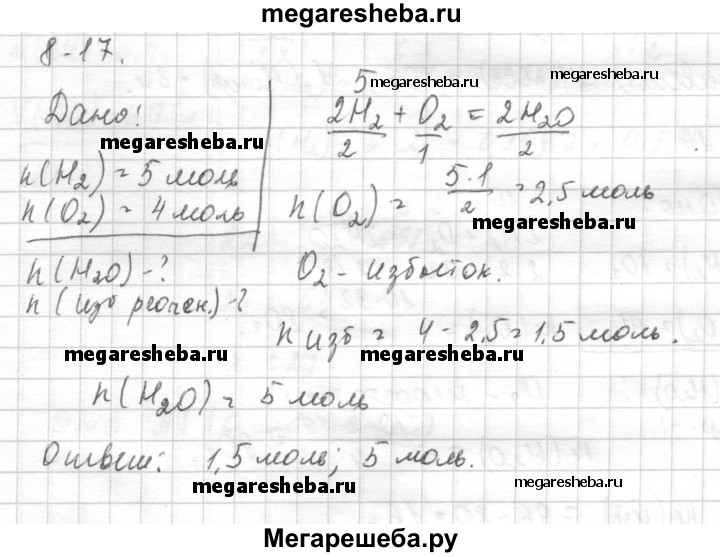 megaresheba.ru
8-17.
Дано!
megaresheba.ru
n(H2) = 5 моль
n(O2) = 4 моль
n(H2O) - ?
n (изб реагент.) - ?
megaresheba.ru
5 megaresheba.ru
megaresheba.ru
2H2 + O2 = 2H2O
2 1 2
n(O2) = 5·1/2 = 2,5 моль
O2 - избыток.
n изб = 4 - 2,5 = 1,5 моль.
megaresheba.ru
n(H2O) = 5 моль
Ответ: 1,5 моль; 5 моль.
megaresheba.ru
megaresheba.ru
Мегарешеба.ру